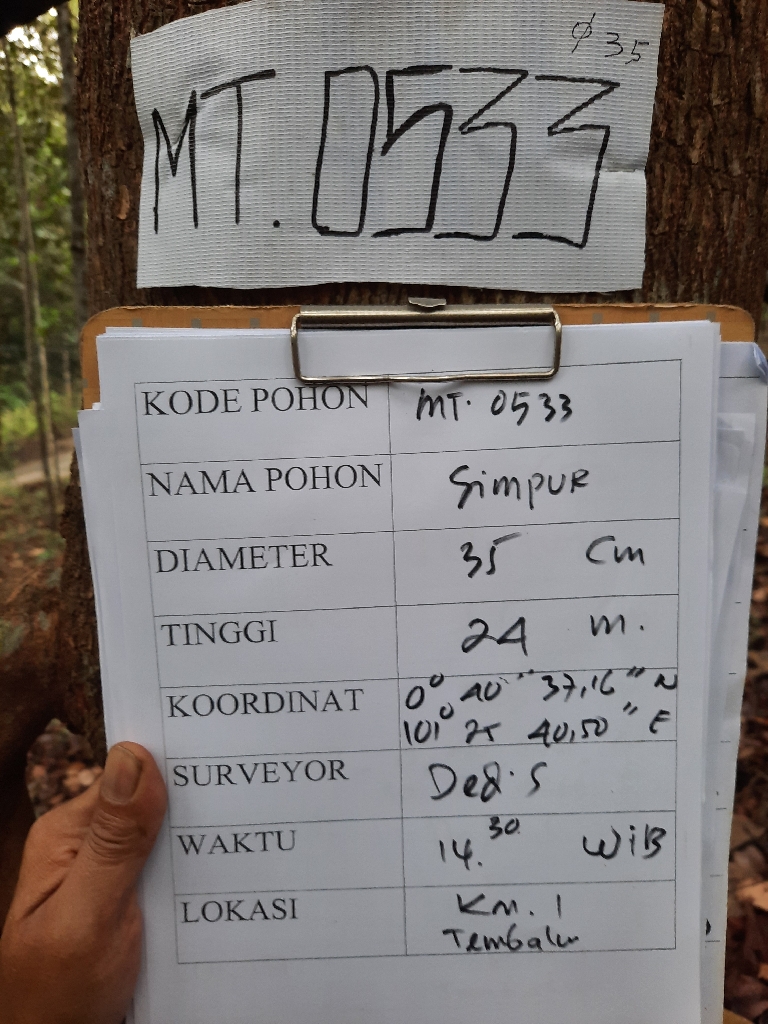 Ø 35
MT. 0533
KODE POHON MT. 0533
NAMA POHON Simpur
DIAMETER 35 Cm
TINGGI 24 m.
KOORDINAT 0° 40" 37,16" N
101° 25 40,50" E
SURVEYOR Ded. S
WAKTU 14.30 WIB
LOKASI Km. 1
Tembalun